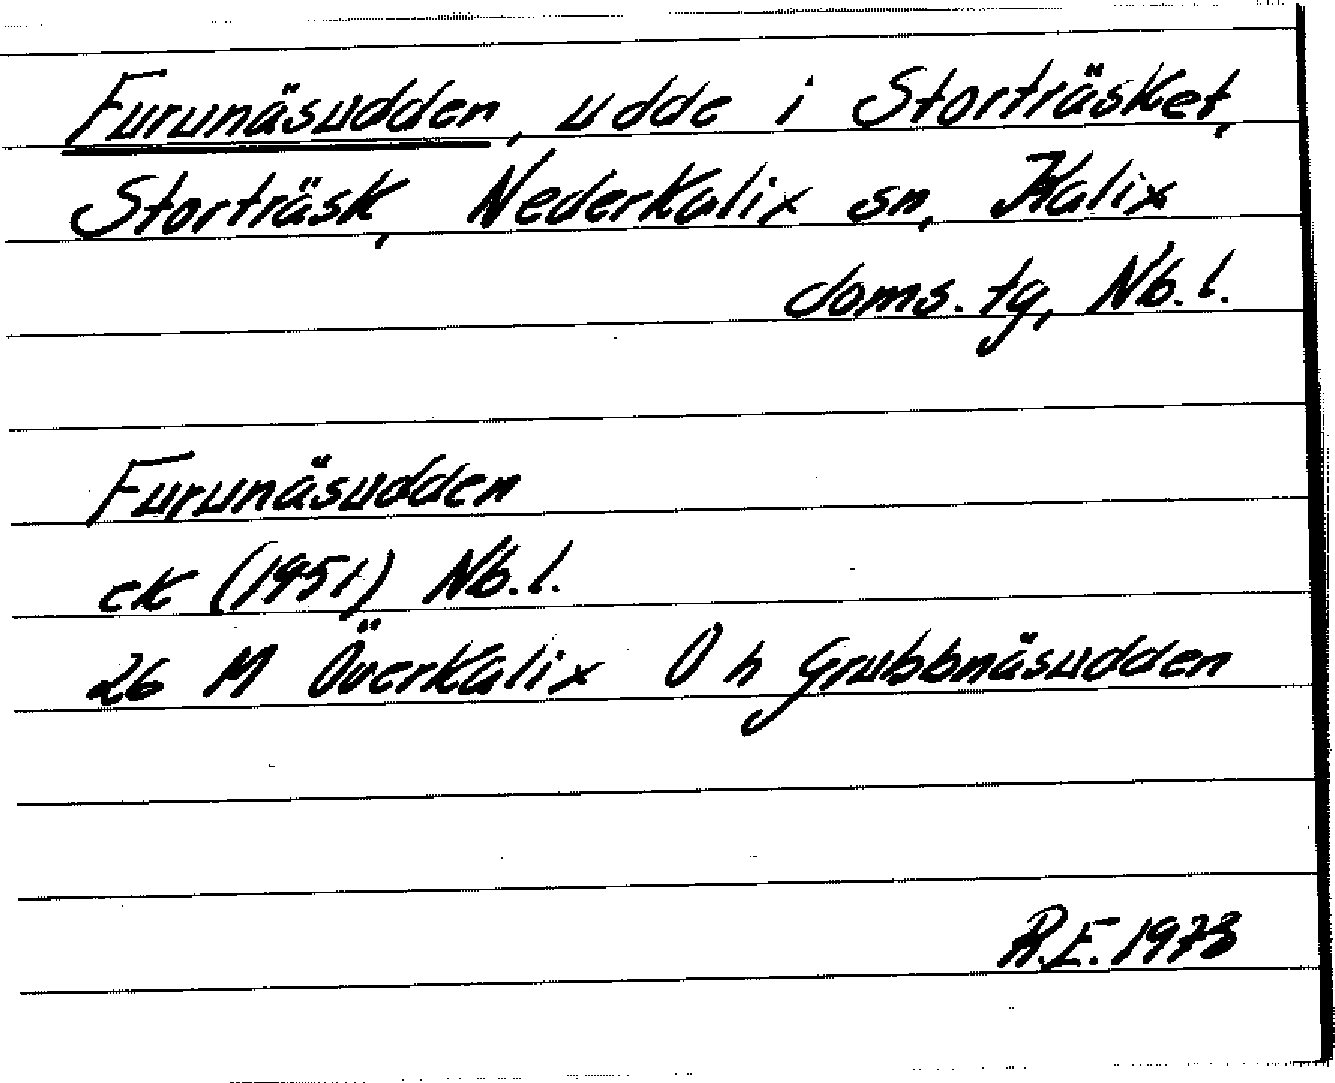 Furunäsudden, udde i Storträsket,
Storträsk, Nederkalix sn, Kalix
doms. tg, Nb. l.
Furunäsudden
ek (1951) Nb. l.
26 M Överkalix O h Grubbnäsudden
R.E. 1973